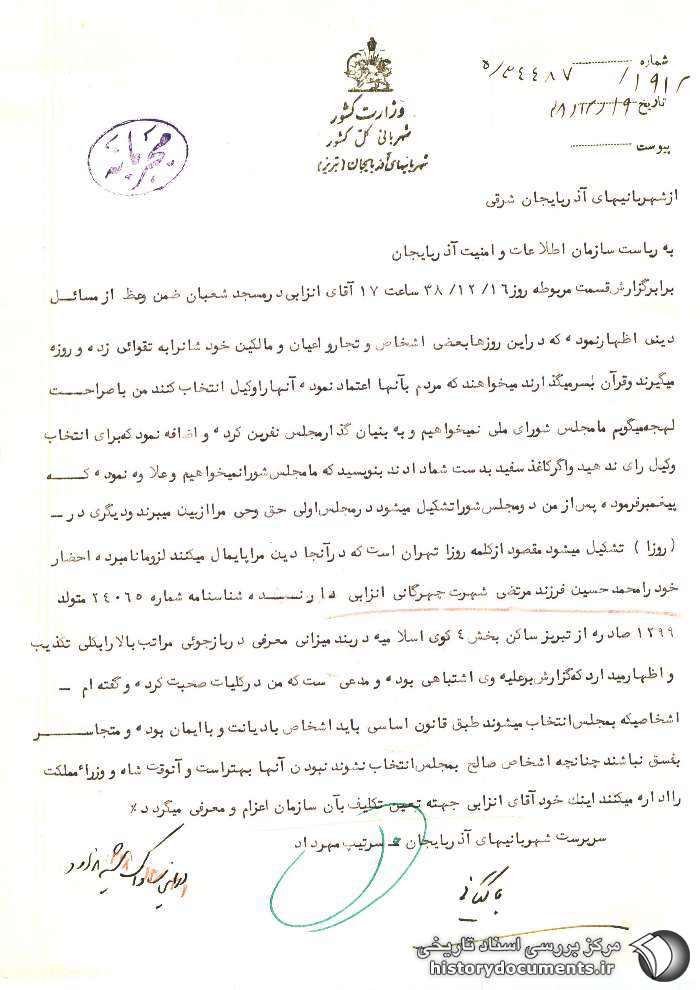 شماره ۵/۳۴۴۸۷ / ۱۹۱۲
تاریخ ۳۸/۱۲/۱۹
پیوست
وزارت کشور
شهربانی کل کشور
شهربانیهای آذربایجان (تبریز)
محرمانه
از شهربانیهای آذربایجان شرقی
به ریاست سازمان اطلاعات و امنیت آذربایجان
برابر گزارش قسمت مربوطه روز ۱۶/ ۱۲/ ۳۸ ساعت ۱۷ آقای انزابی در مسجد شعبان ضمن وعظ از مسائل
دینی اظهار نموده که در این روزها بعضی اشخاص و تجار و اعیان و مالکین خود شانرا به تقوائی زده و روزه
میگیرند و قرآن بسر میگذارند میخواهند که مردم بآنها اعتماد نموده آنها را وکیل انتخاب کنند من با صراحت
لهجه میگویم ما مجلس شورای ملی نمیخواهیم و به بنیان گذار مجلس نفرین کرده و اضافه نمود که برای انتخاب
وکیل رای ندهید و اگر کاغذ سفید بدست شما دادند بنویسید که ما مجلس شورا نمیخواهیم و علاوه نموده کـــه
پیغمبر فرموده پس از من دو مجلس شورا تشکیل میشود در مجلس اولی حق وحی مرا از بین میبرند و دیگری در ـ
(روزا) تشکیل میشود مقصود از کلمه روزا تهران است که در آنجا دین مرا پایمال میکنند لزوما نامبرده احضار
خود را محمد حسین فرزند مرتضی شهرت چهرگانی انزابی دارنـــده شناسنامه شماره ۲۴۰۶۵ متولد
۱۲۹۹ صادره از تبریز ساکن بخش ۴ کوی اسلامیه دربند میزانی معرفی در بازجوئی مراتب بالا را بکلی تکذیب
و اظهار میدارد که گزارش بر علیه وی اشتباهی بوده و مدعی است که من در کلیات صحبت کرده و گفته ام ـ
اشخاصیکه بمجلس انتخاب میشوند طبق قانون اساسی باید اشخاص با دیانت و با ایمان بوده و متجاســـر
بفسق نباشند چنانچه اشخاص صالح بمجلس انتخاب نشوند نبودن آنها بهتر است و آنوقت شاه و وزراء مملکت
را اداره میکنند اینک خود آقای انزابی جهته تعیین تکلیف بآن سازمان اعزام و معرفی میگردد٪
سرپرست شهربانیهای آذربایجان ـ سرتیپ مهرداد
مرکز بررسی اسناد تاریخی
historydocuments.ir